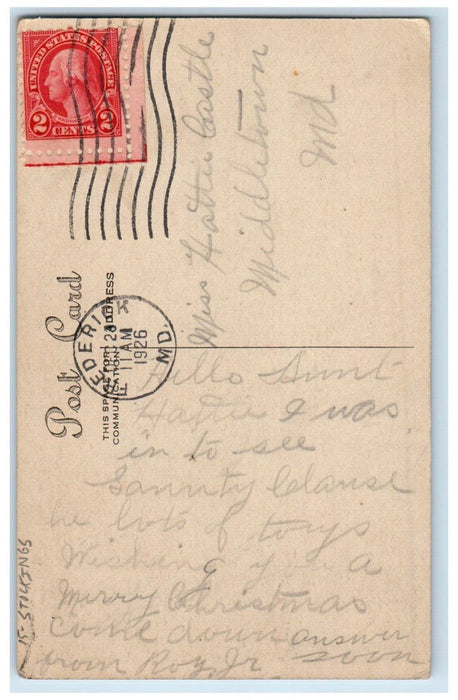 UNITED STATES POSTAGE
2 CENTS 2
FREDERICK
DEC 23
11 AM
1926
MD.
Post Card
THIS SPACE FOR ADDRESS
COMMUNICATION
Miss Hattie Castle
Middletown
Md
Hello Aunt
Hattie I was
in to see
Sannty Clause
he lots of toys
Wishing you a
Merry Christmas
come down answer
from Roy Jr. soon
15-STOCKINGS